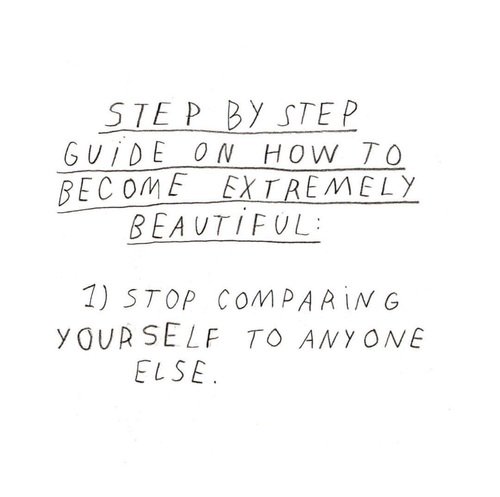 STEP BY STEP
GUiDE ON HOW TO
BECOME EXTREMELY
BEAUTiFUL:
1) STOP COMPARiNG
YOURSELF TO ANYONE
ELSE.